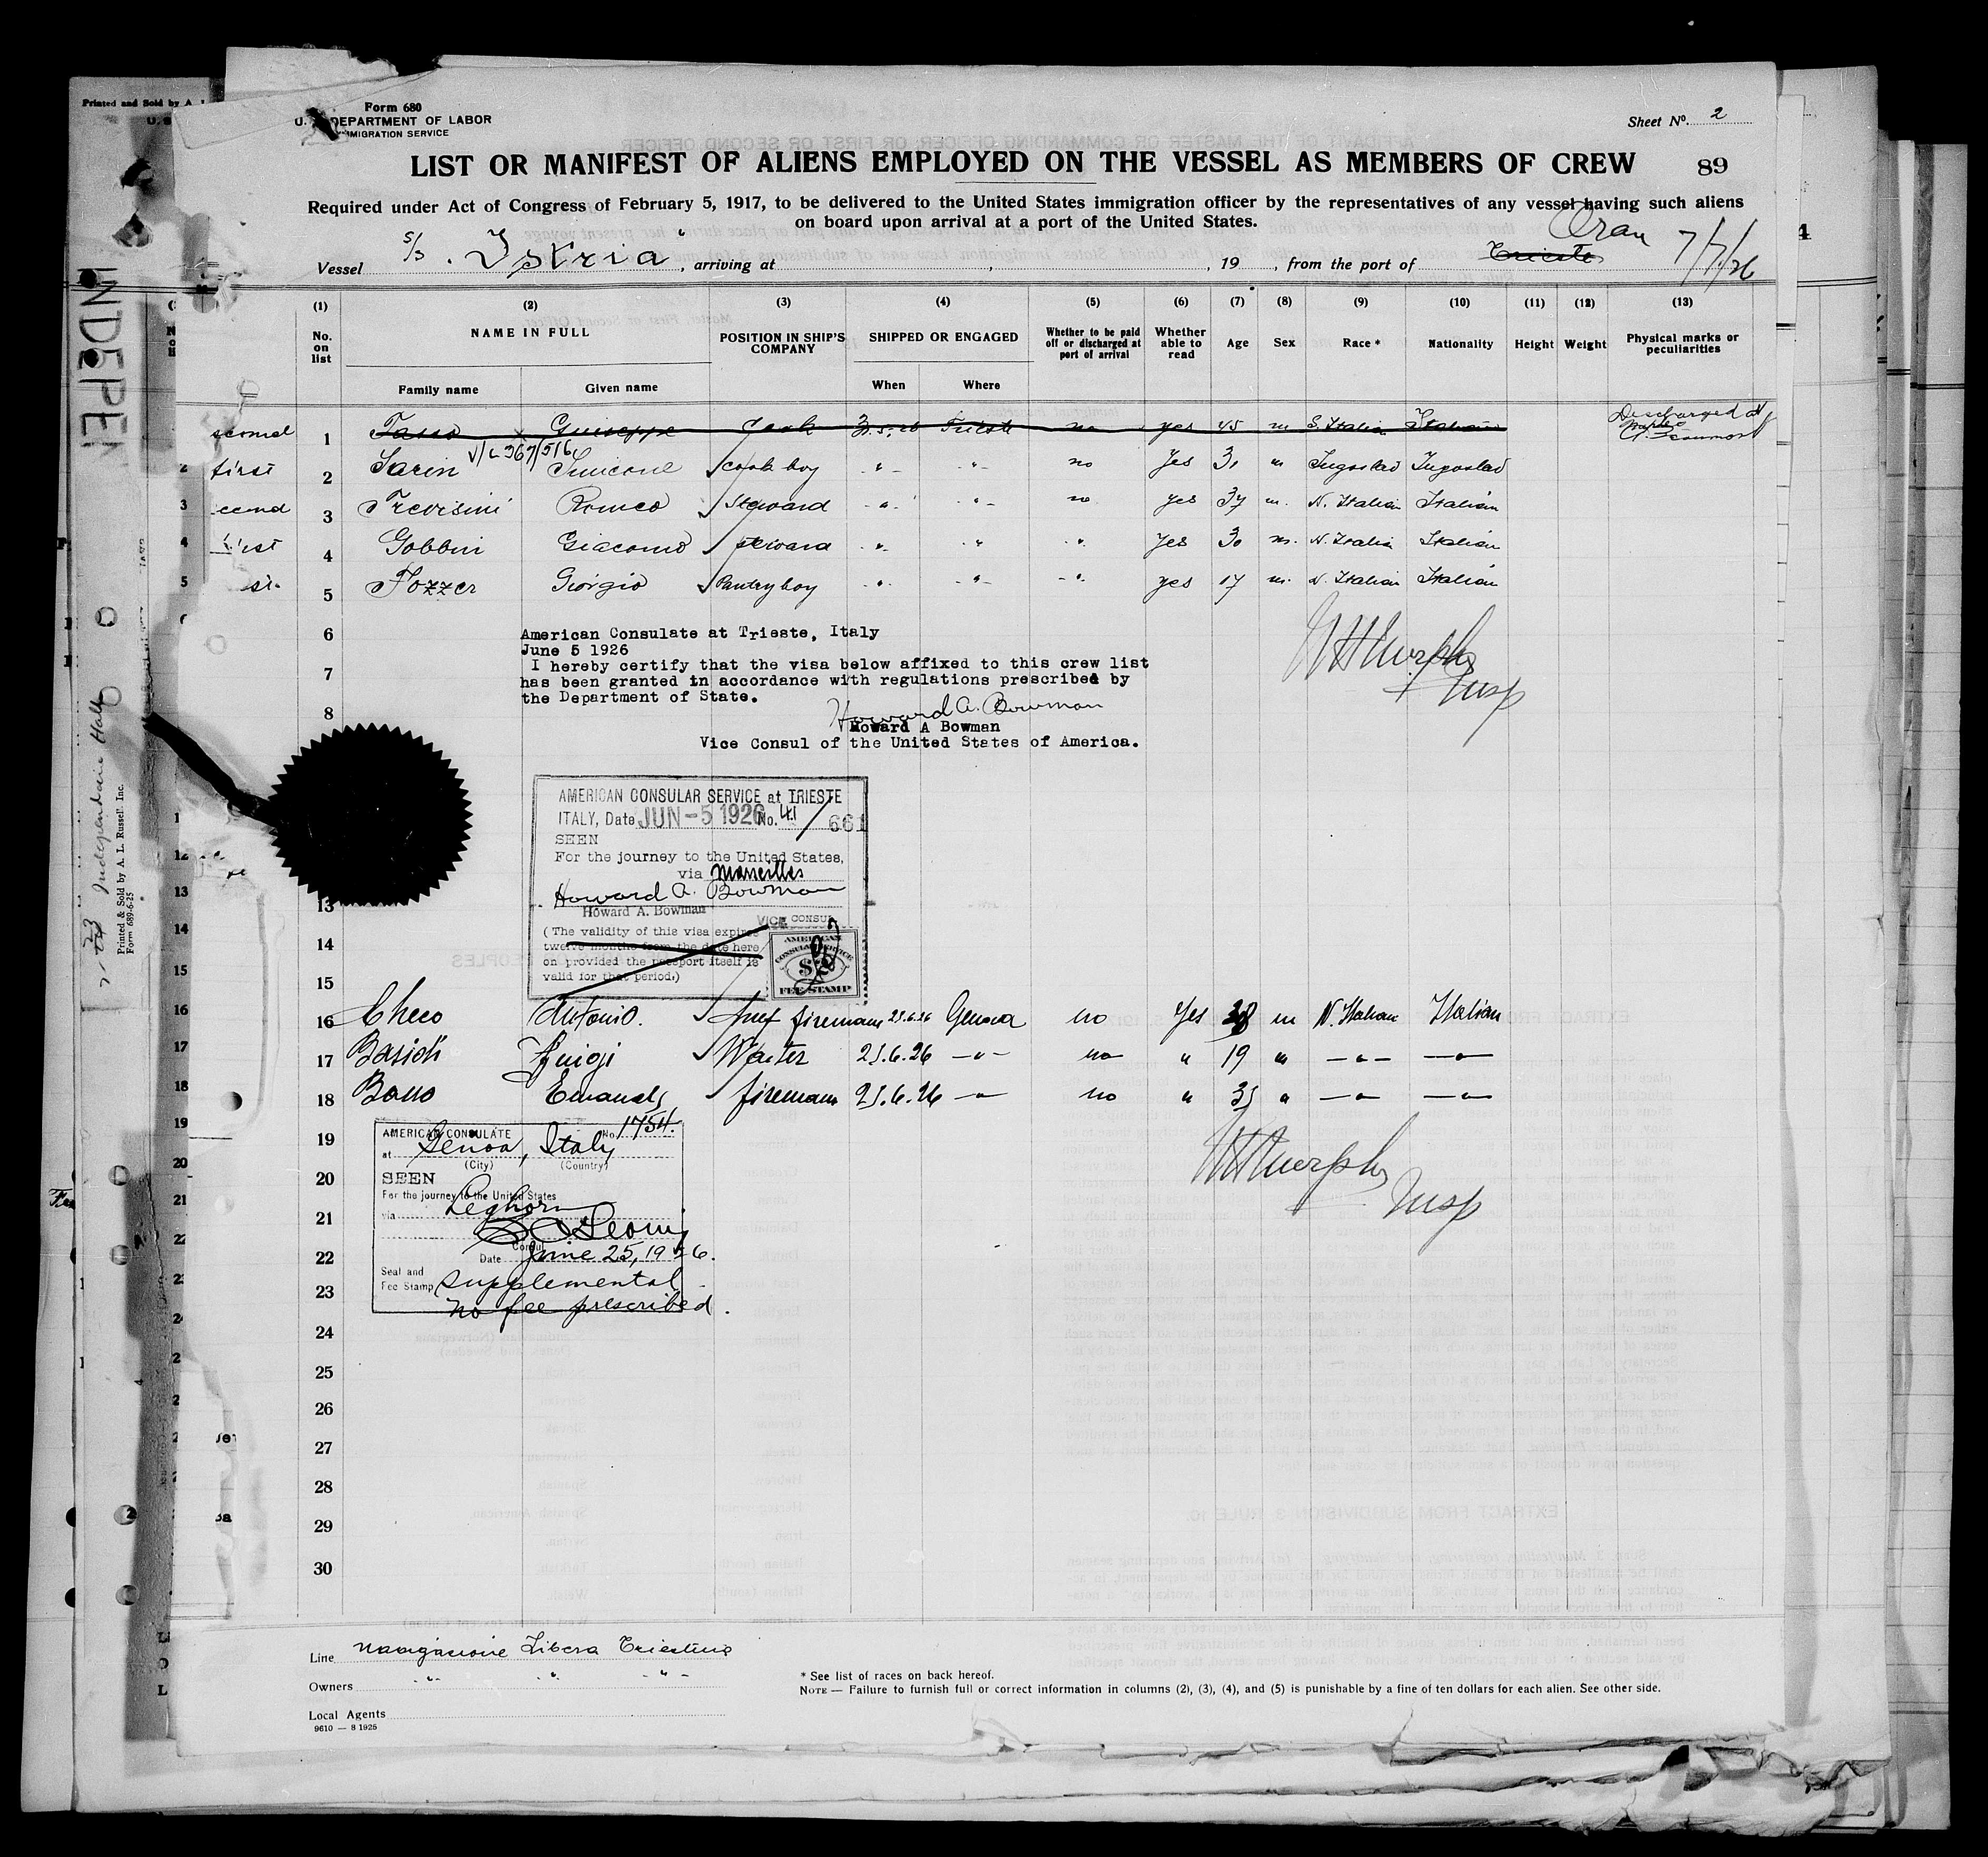 Printed and Sold by A. L
Form 680
U. S. DEPARTMENT OF LABOR
IMMIGRATION SERVICE
Sheet No. 2
LIST OR MANIFEST OF ALIENS EMPLOYED ON THE VESSEL AS MEMBERS OF CREW
89
Required under Act of Congress of February 5, 1917, to be delivered to the United States immigration officer by the representatives of any vessel having such aliens
on board upon arrival at a port of the United States.
Vessel S/S. "Istria", arriving at , , 19 , from the port of Trieste Oran 7/7/26
(1) (2) (3) (4) (5) (6) (7) (8) (9) (10) (11) (12) (13)
No. on list NAME IN FULL POSITION IN SHIP'S COMPANY SHIPPED OR ENGAGED Whether to be paid off or discharged at port of arrival Whether able to read Age Sex Race * Nationality Height Weight Physical marks or peculiarities
Family name Given name When Where
second 1 Tasso Guiseppe Cook 31.5.26 Trieste no yes 45 m S. Italian Italian Discharged at
first 2 Sarin Simeone cook boy " " no Yes 30 m Jugoslad Jugoslad
second 3 Trevisini Romeo Steward " " no yes 37 m. N. Italian Italian
first 4 Gobbini Giacomo steward " " " Yes 30 m. N. Italia Italian
5 Tozzer Giorgio Pantry boy " " " yes 17 m. N. Italian Italian
6 American Consulate at Trieste, Italy
June 5 1926
7 I hereby certify that the visa below affixed to this crew list
has been granted in accordance with regulations prescribed by
the Department of State.
8 Howard A. Bowman
Howard A Bowman
Vice Consul of the United States of America.
W H Murphy
Insp
AMERICAN CONSULAR SERVICE at TRIESTE
ITALY, Date JUN - 5 1926 No. 41/661
SEEN
For the journey to the United States,
via Marseilles
Howard A. Bowman
Howard A. Bowman
VICE CONSUL
(The validity of this visa expires
twelve months from the date here
on provided the passport itself is
valid for that period.)
AMERICAN
CONSULAR SERVICE
$2
FEE STAMP
13
14
15
16 Checo Antonio. chief fireman 25.6.26 Genova no Yes 38 m N. Italian Italian
17 Basioli Luigi Waiter 25.6.26 " no " 19 " " "
18 Basso Emanuele fireman 25.6.26 " no " 35 " " "
19
20
21
22
23
24
25
26
27
28
29
30
AMERICAN CONSULATE No. 1754.
at Genoa, Italy
(City) (Country)
SEEN
For the journey to the United States
via Leghorn
Consul
Date June 25, 1926.
Seal and
Fee Stamp
Supplemental
no fee prescribed.
W H Murphy
Insp
Line Navigazione Libera Triestina
Owners " " "
Local Agents
9610 — 8 1925
* See list of races on back hereof.
NOTE — Failure to furnish full or correct information in columns (2), (3), (4), and (5) is punishable by a fine of ten dollars for each alien. See other side.
INDEPEN
Independence Hall
Printed & Sold by A. L. Russell Inc.
Form 689-6-25